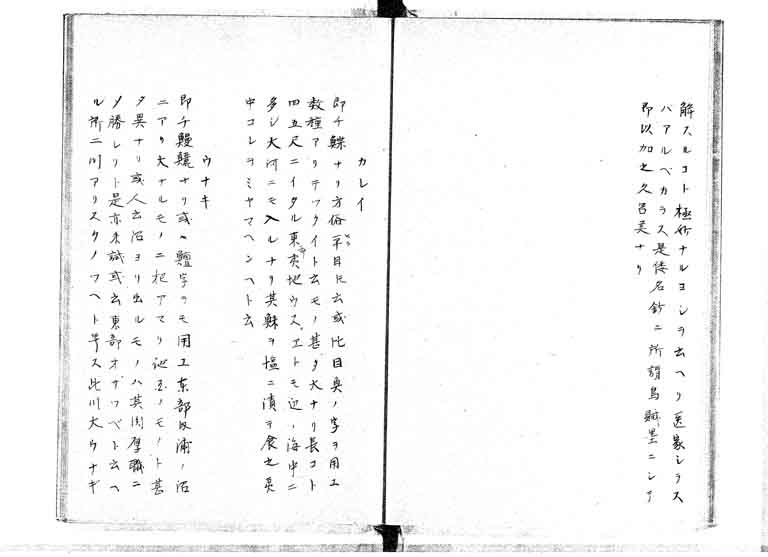 解スルコト極妙ナルヨシヲ云ヘリ医家シラス
ハアルベカラス是倭名鈔ニ所謂烏賊墨ニシテ
即以加之久呂美ナリ
カレイ
即チ鰈ナリ方俗平目 ヒラ 氏云或比目魚ノ字ヲ用エ
数種アリテックイト云モノ甚タ大ナリ長コト
四五尺ニイタル東夷地ウス エトモ辺ノ海中ニ
多シ大河ニモ入ルナリ其鮴ヲ塩ニ漬ヲ食之英
中コレヲミヤマヘンヘト云
ウナキ
即チ鰻鱺ナリ或ハ鱣字ヲモ用エ東部 浦ノ沼
ニアリ大ナルモノニ アマリ 玉ノモノト甚
タ異ナリ或人云沼ヨリ出ルモノハ其肉厚 ニ
〆勝レリト是亦未試或云東部オナツベト云ヘ
ル所ニ川アリスクノツヘト号ス此川大ウナギ